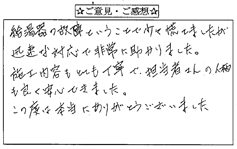 ☆ご意見・ご感想☆
給湯器の故障ということで少々慌てましたが
迅速な対応で非常に助かりました。
施工内容もとても丁寧で、担当者さんの人柄
も良く安心できました。
この度は本当にありがとうございました